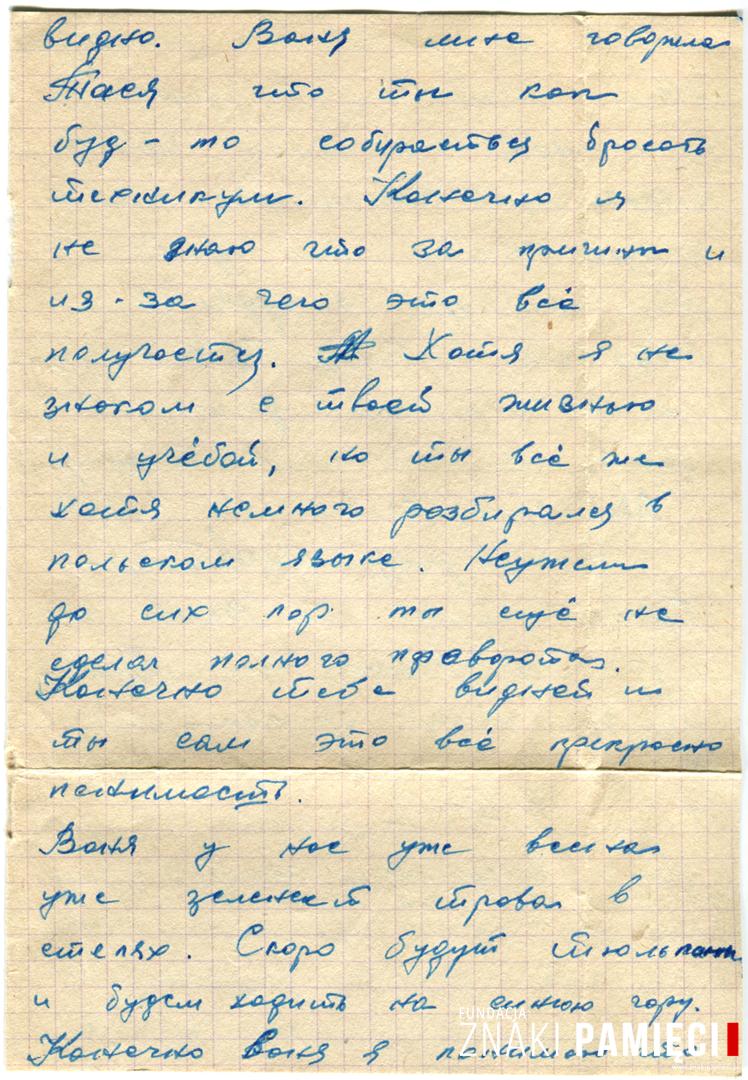 видно. Ваня мне говорила
Тася что ты как
буд-то собираешься бросать
техникум. Конечно я
не знаю что за причина и
из-за чего это всё
получается. Хотя я не
знаком с твоей жизнью
и учёбой, но ты всё же
хотя немного розбирался в
польском языке. Неужели
до сих пор ты ещё не
сделал полного
Конечно тебе видней и
ты сам это всё прекрасно
понимаешь.
Ваня у нас уже весна
уже зеленеет трава в
степях. Скоро будут тюльпаны
и будем ходить на синюю гору.
Конечно Ваня я
FUNDACJA
ZNAKI PAMIĘCI